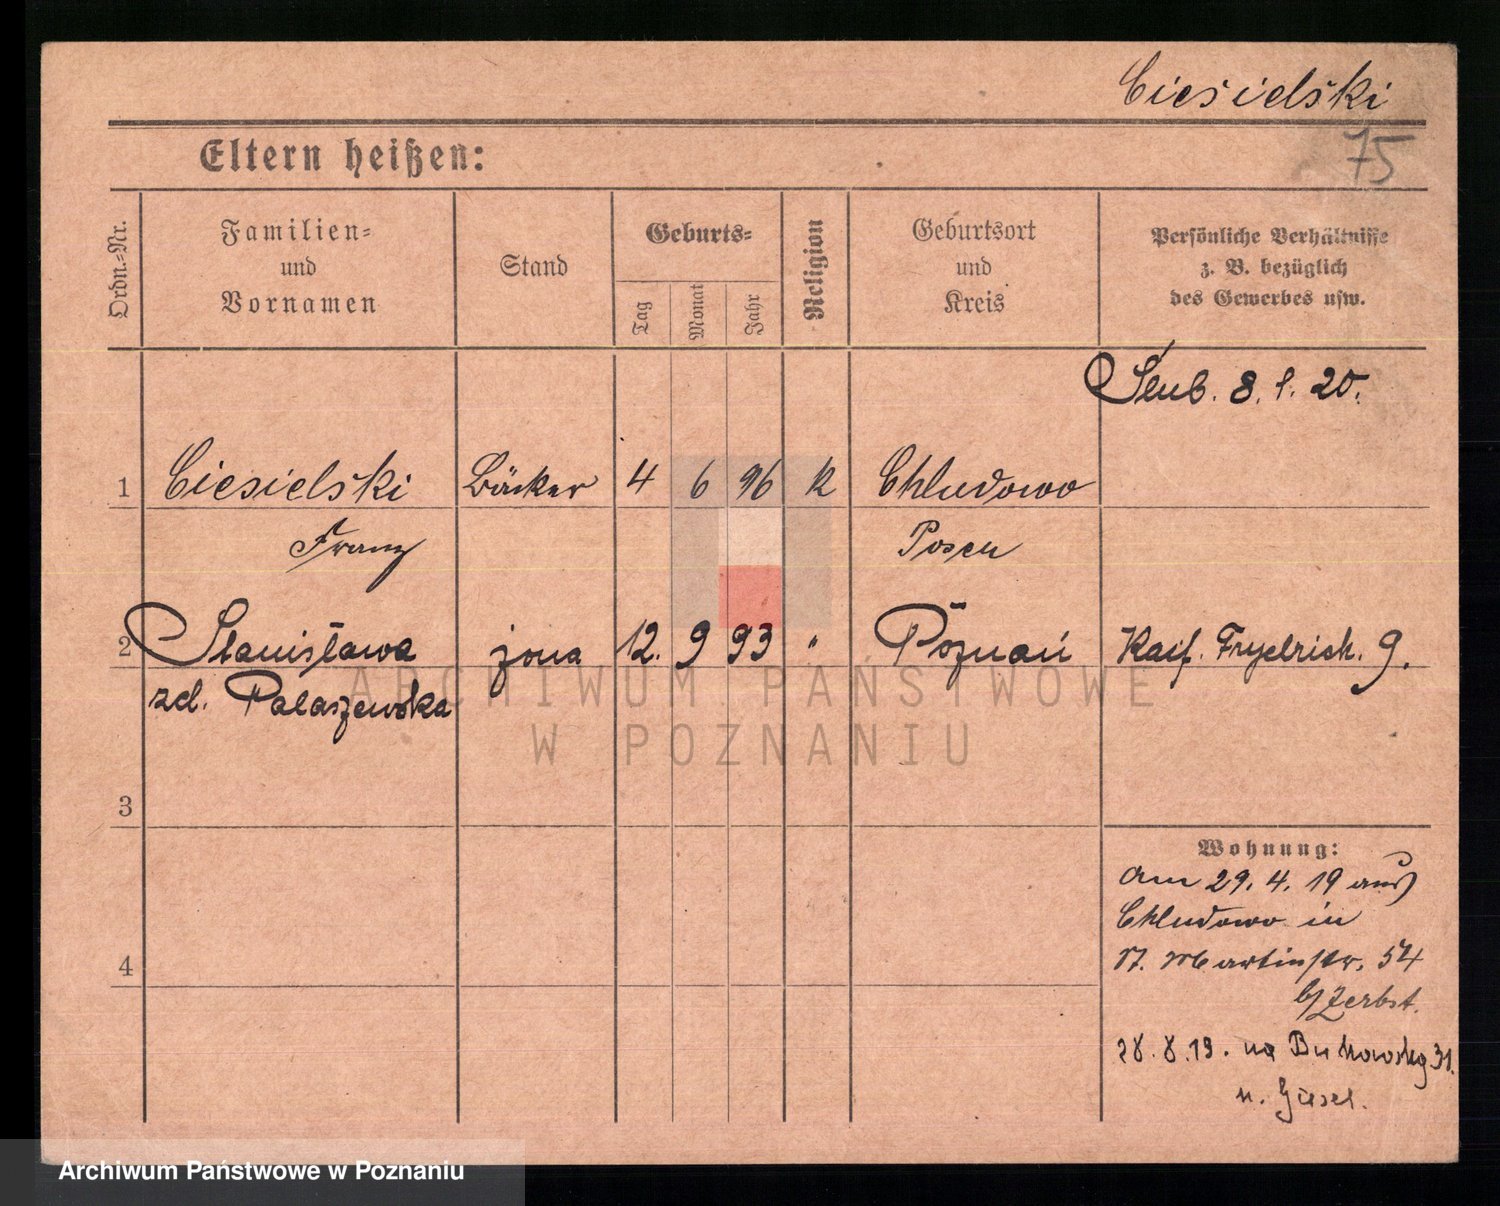 Ciesielski
75
Eltern heißen:
Ordn.-Nr.
Familien-
und
Vornamen
Stand
Geburts-
Tag
Monat
Jahr
Religion
Geburtsort
und
Kreis
Persönliche Verhältnisse
z. B. bezüglich
des Gewerbes usw.
Ślub. 8. 1. 20.
1 Ciesielski Bäcker 4 6 96 K Chludowo
Franz Posen
2 Stanisława żona 12. 9 93 " Poznań Frydrich. 9.
Palaszewska
ARCHIWUM PAŃSTWOWE
W POZNANIU
3
Wohnung:
am 29. 4. 19 aus
Chludowo in
4
St. Martinstr. 54
b/Zerbst.
28. 8. 19. na Bukowską 31.
u.
Archiwum Państwowe w Poznaniu